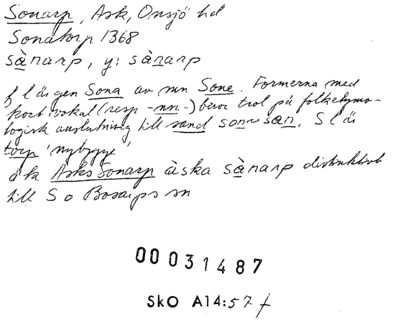 Sonarp, Ask, Onsjö hd
Sonatorp 1368
sànarp, y: sànarp
f l är gen Sona av mn Sone. Formerna med
kort vokal (resp -nn-) beror trol på folketymo-
logisk anslutning till sand son san. S l är
torp 'nybygge'
äk Asks Sonarp àska sànarp distinktivt
till S o Bosarps sn
00031487
SkO A14:57